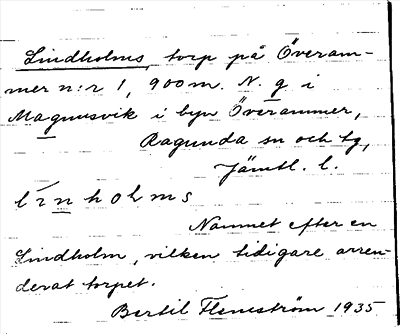 Lindholms, torp på Överam-
mer n:r 1, 900 m. N. g. i
Magnusvik i byn Överammer,
Ragunda sn och tg,
Jämtl. l.
línholms
Namnet efter en
Lindholm, vilken tidigare arren-
derat torpet.
Bertil Flemström 1935